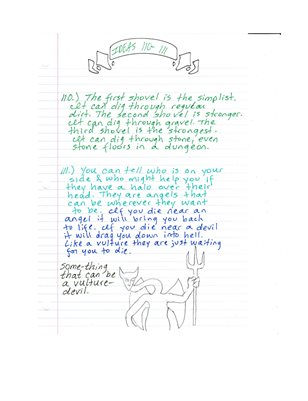 IDEAS 110-111
110.) The first shovel is the simplist.
It can dig through regular
dirt. The second shovel is stronger.
It can dig through gravel. The
third shovel is the strongest.
It can dig through stone, even
stone floors in a dungeon.
111.) You can tell who is on your
side & who might help you if
they have a halo over their
head. They are angels that
can be wherever they want
to be. If you die near an
angel it will bring you back
to life. If you die near a devil
it will drag you down into hell.
Like a vulture they are just waiting
for you to die.
Some-thing
that can be
a vulture-
devil.